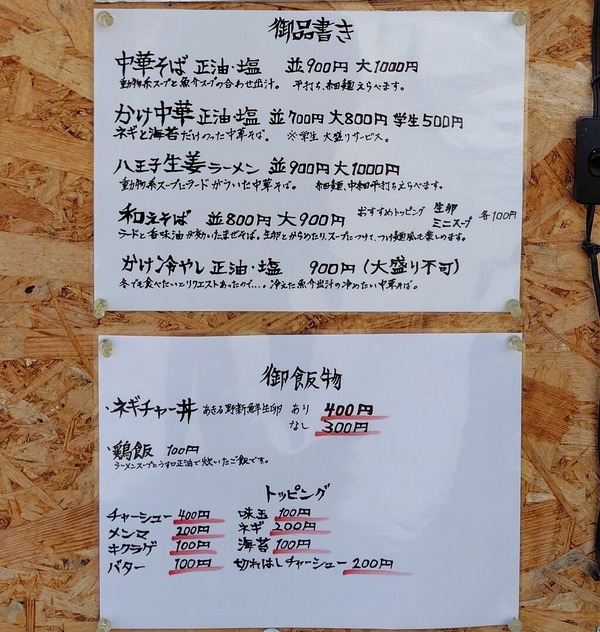 御品書き
中華そば 正油・塩 並900円 大1000円
動物系スープと魚介スープの合わせ出汁。 平打ち、細麺えらべます。
かけ中華 正油・塩 並700円 大800円 学生500円
ネギと海苔だけのった中華そば。 ※学生 大盛りサービス。
八王子生姜ラーメン 並900円 大1000円
動物系スープにラードがういた中華そば。 細麺、中細平打ちえらべます。
和えそば 並800円 大900円 おすすめトッピング 生卵 ミニスープ 各100円
ラードと香味油が効いたまぜそば。生卵とからめたり、スープにつけて、つけ麺風も楽しめます。
かけ冷やし 正油・塩 900円(大盛り不可)
冬でも食べたいとリクエストあったので…。冷えた魚介出汁の冷めたい中華そば。
御飯物
・ネギチャー丼 あきる野新鮮生卵 あり 400円
なし 300円
・鶏飯 100円
ラーメンスープとうす口正油で炊いたご飯です。
トッピング
チャーシュー 400円 味玉 100円
メンマ 200円 ネギ 200円
キクラゲ 100円 海苔 100円
バター 100円 切れはしチャーシュー 200円